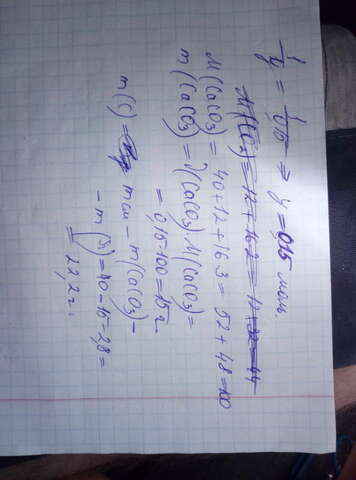 1/y = 1/0,15 ⇒ y = 0,15 моль
M(CO₂) = 12 + 16·2 = 12 + 32 = 44
M(CaCO₃) = 40 + 12 + 16·3 = 52 + 48 = 100
m(CaCO₃) = ν(CaCO₃)·M(CaCO₃) =
= 0,15·100 = 15 г
m(C) = mсм – m(CaCO₃) –
– m(Si) = 40 – 15 – 2,8 =
= 22,2 г.